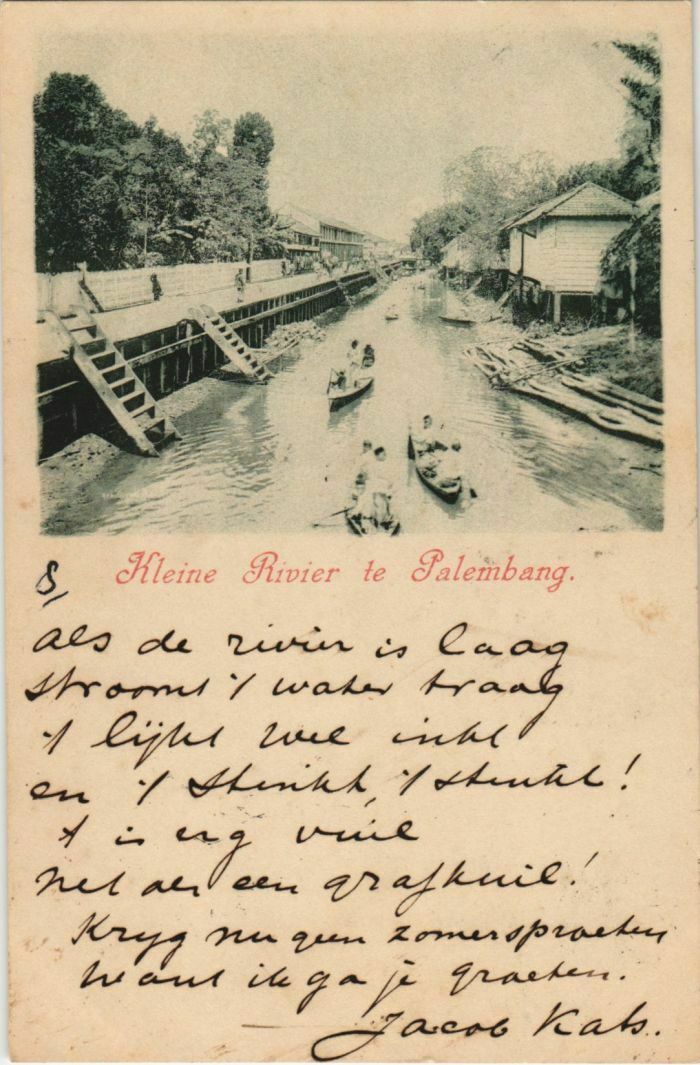 Kleine Rivier te Palembang.
8,
als de rivier is laag
stroomt 't water traag
't lijkt wel inkt
en 't stinkt, 't stinkt!
't is erg vuil
net als een grafkuil!
Kryg nu geen zomersproeten
want ik ga je groeten.
Jacob Kats.